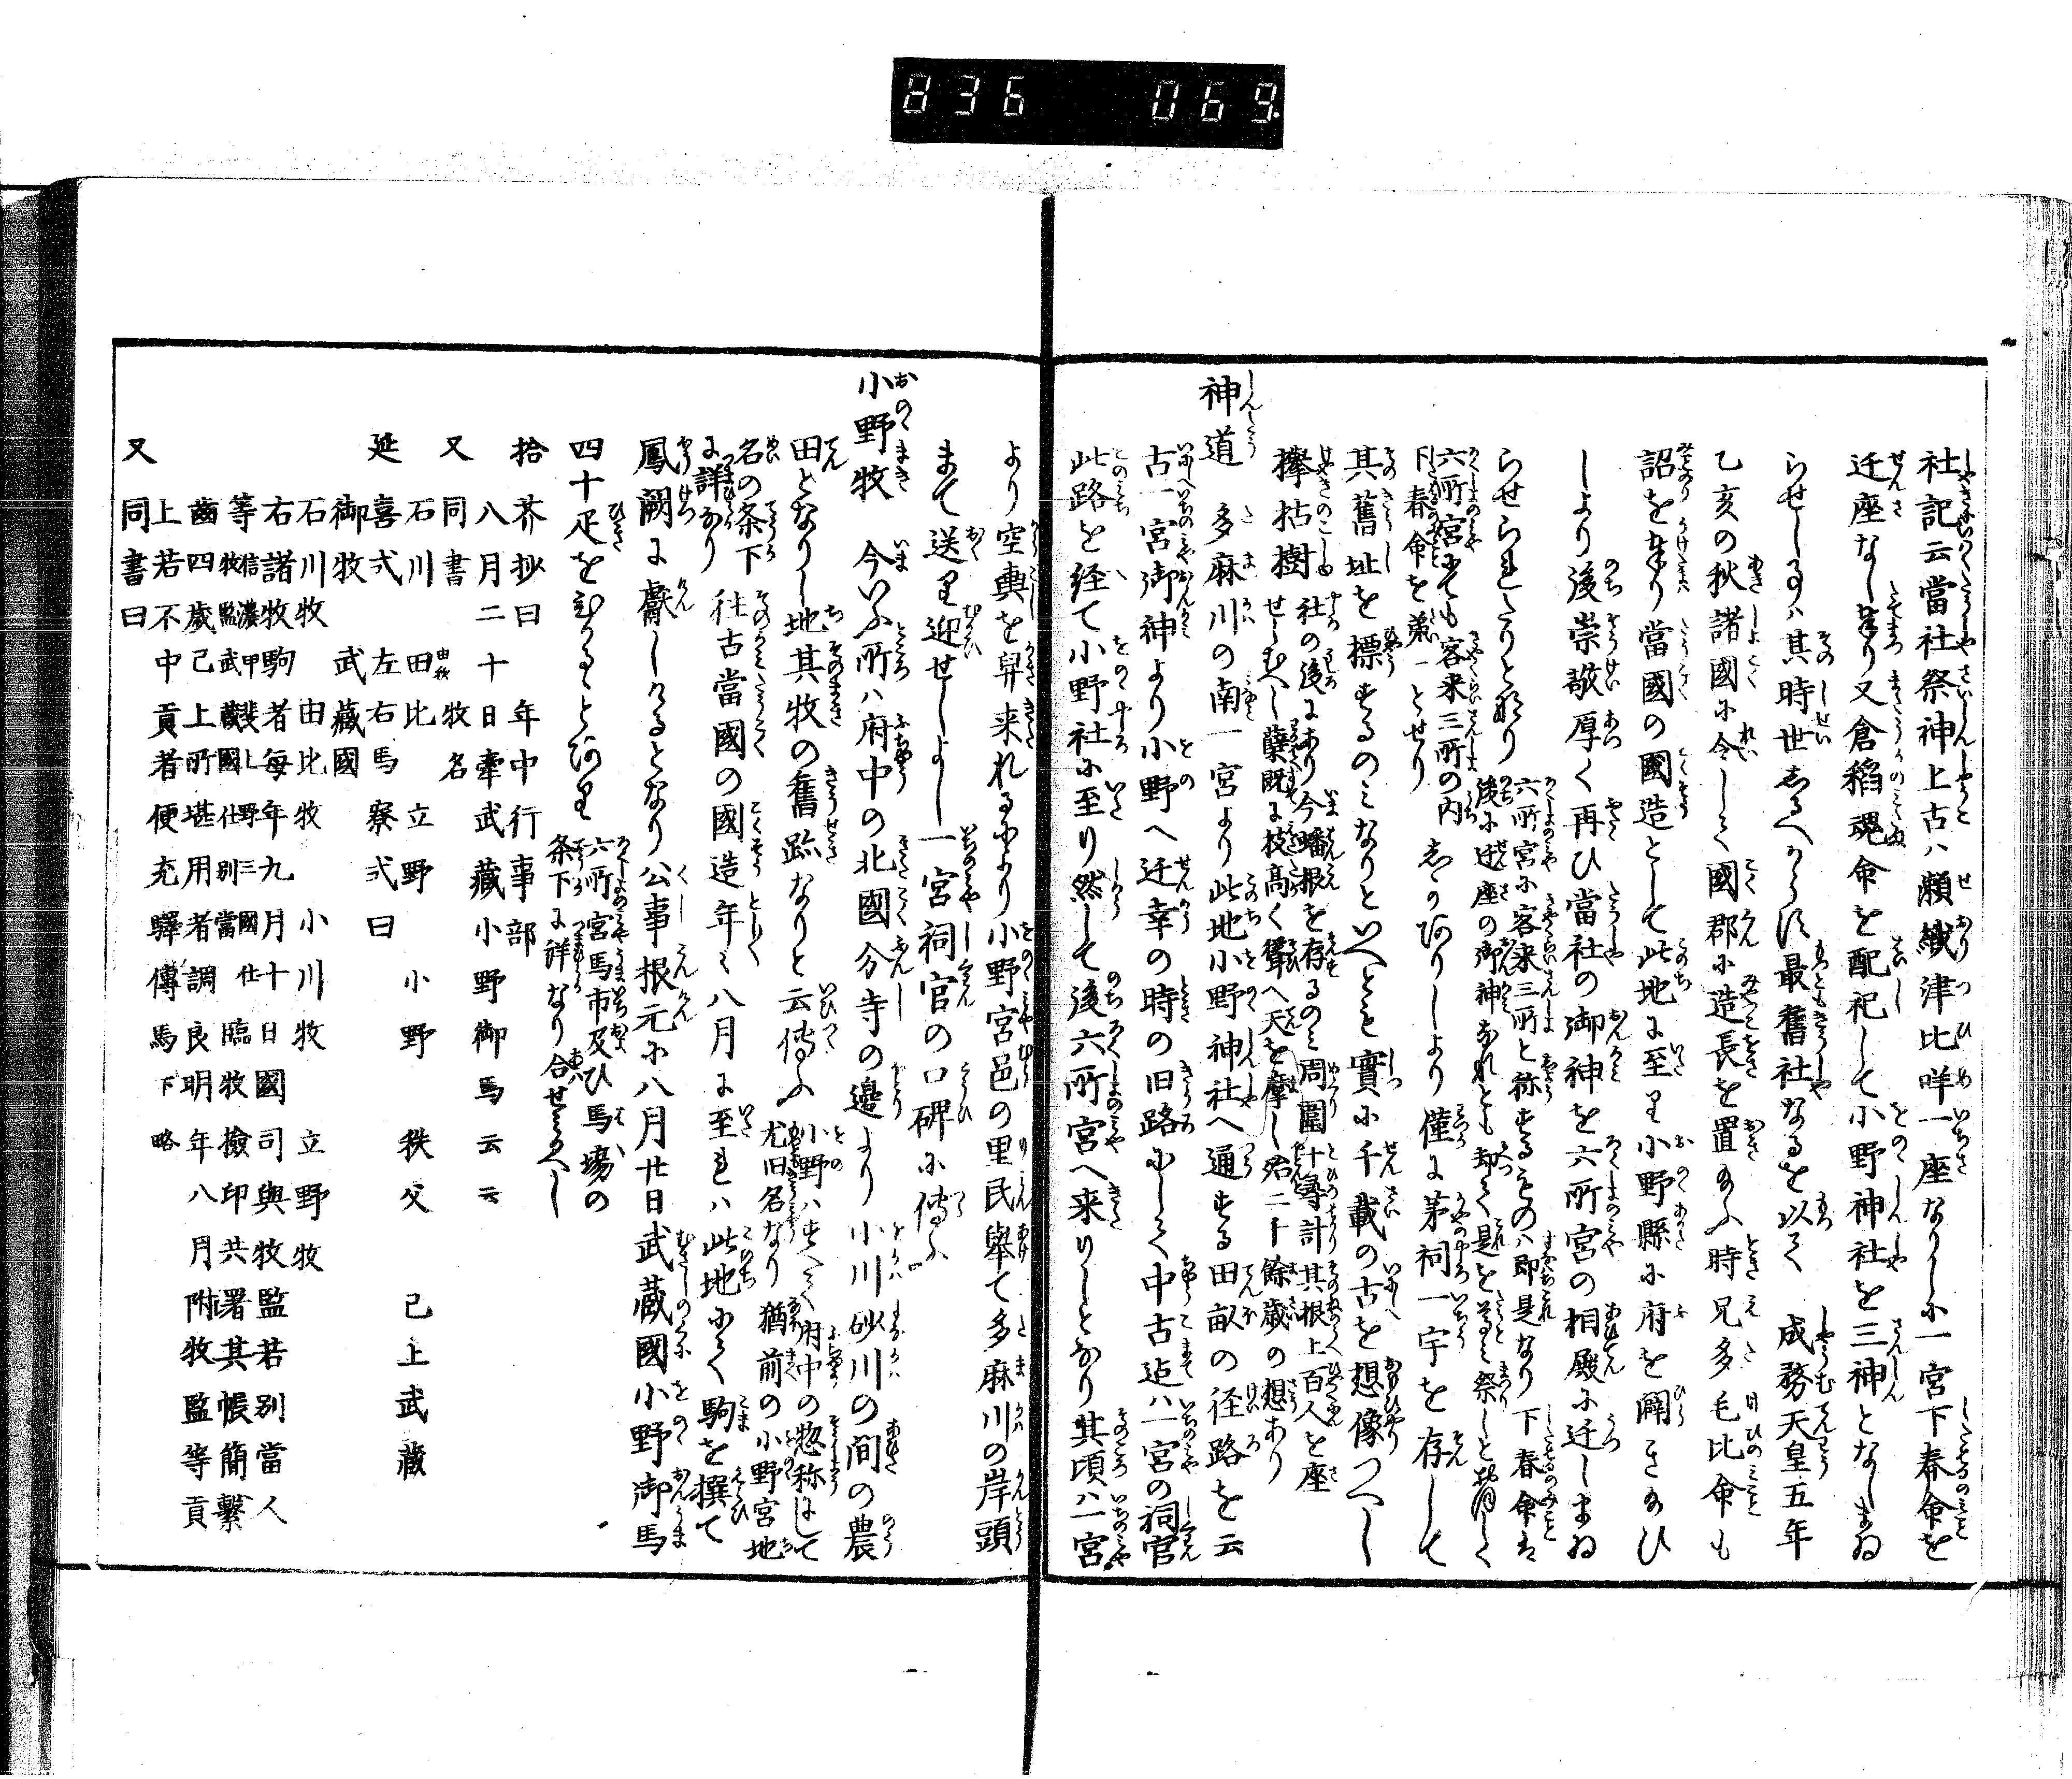 836 069
社記云當社祭神上古ハ瀬織津比咩一座なりしに一宮下春命を
迁座なし奉り又倉稻魂命を配祀して小野神社を三神となしまゐ
らせしるハ其時世しるへからす最舊社なるを以て 成務天皇五年
乙亥の秋諸國に令して國郡に造長を置給ふ時兄多毛比命も
詔を奉り當國の國造として此地に至り小野縣に府を闢き給ひ
しより後崇敬厚く再ひ當社の御神を六所宮の相殿に迁しまゐ
らせられたりとなり 六所宮に客来三所と称するものハ即是なり下春命は
後に迁座の御神なれとも却て是を祭しと
六所宮にても客来三所の内
下春命を第一とせり しかありしより僅に茅祠一宇を存して
其舊址を標するのミなりといへとも實に千載の古を想像つへし
擧拈樹 社の後にあり今蟠根を存るのミ周圍十尋計其根上百人を座
せしむへし蘖既に枝高く聳へ天を摩し 二千餘歳の想あり
神道 多麻川の南一宮より此地小野神社へ通する田畝の径路を云
古一宮御神より小野へ迁幸の時の旧路にして中古迠ハ一宮の祠官
此路を経て小野社に至り然して後六所宮へ来りしとなり其頃ハ一宮
より空輿を舁来れるにより小野宮邑の里民擧て多麻川の岸頭
まて送り迎せしよし一宮祠官の口碑に傳ふ
小野牧 今いふ所ハ府中の北國分寺の邊より小川砂川の間の農
田となりし地其牧の舊跡なりと云傳ふ 小野ハすへて府中の惣称にして
尤旧名なり猶前の小野宮地
名の条下
に詳なり 往古當國の國造年々八月に至れハ此地にて駒を撰て
鳳闕に獻しけるとなり公事根元に八月廿日武蔵國小野御馬
四十疋をひかるゝとあり 六所宮馬市及ひ馬場の
条下に詳なり合せみるへし
拾芥抄曰 年中行事部
八月二十日牽武蔵小野御馬云云
又同書 牧名
石川 由比 立野 小野 秩父 已上武藏
延喜式 左右馬寮式曰
御牧 武藏國
石川牧 由比牧 小川牧 立野牧
右諸牧駒者每年九月十日國司與牧監若別當人
等 信濃甲斐上野三國仕牧監武藏國仕別當 臨牧撿印共署其帳簡繫
齒四歲已上所堪用者調良明年八月附牧監等貢
上若不中貢者便充驛傳馬 下略
又同書曰